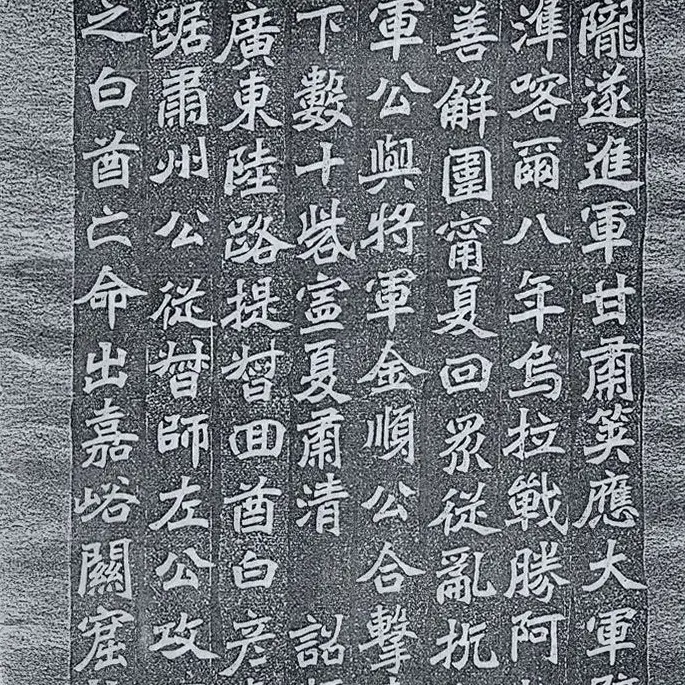 隴遂進軍甘肅筴應大軍
準喀爾八年烏拉戰勝阿
善解圍甯夏回眾從亂
軍公與將軍金順公合擊
下數十砦寍夏肅清 詔
廣東陸路提督回酋白彦
踞肅州公從督師左公攻
之白酋亡命出嘉峪關窟